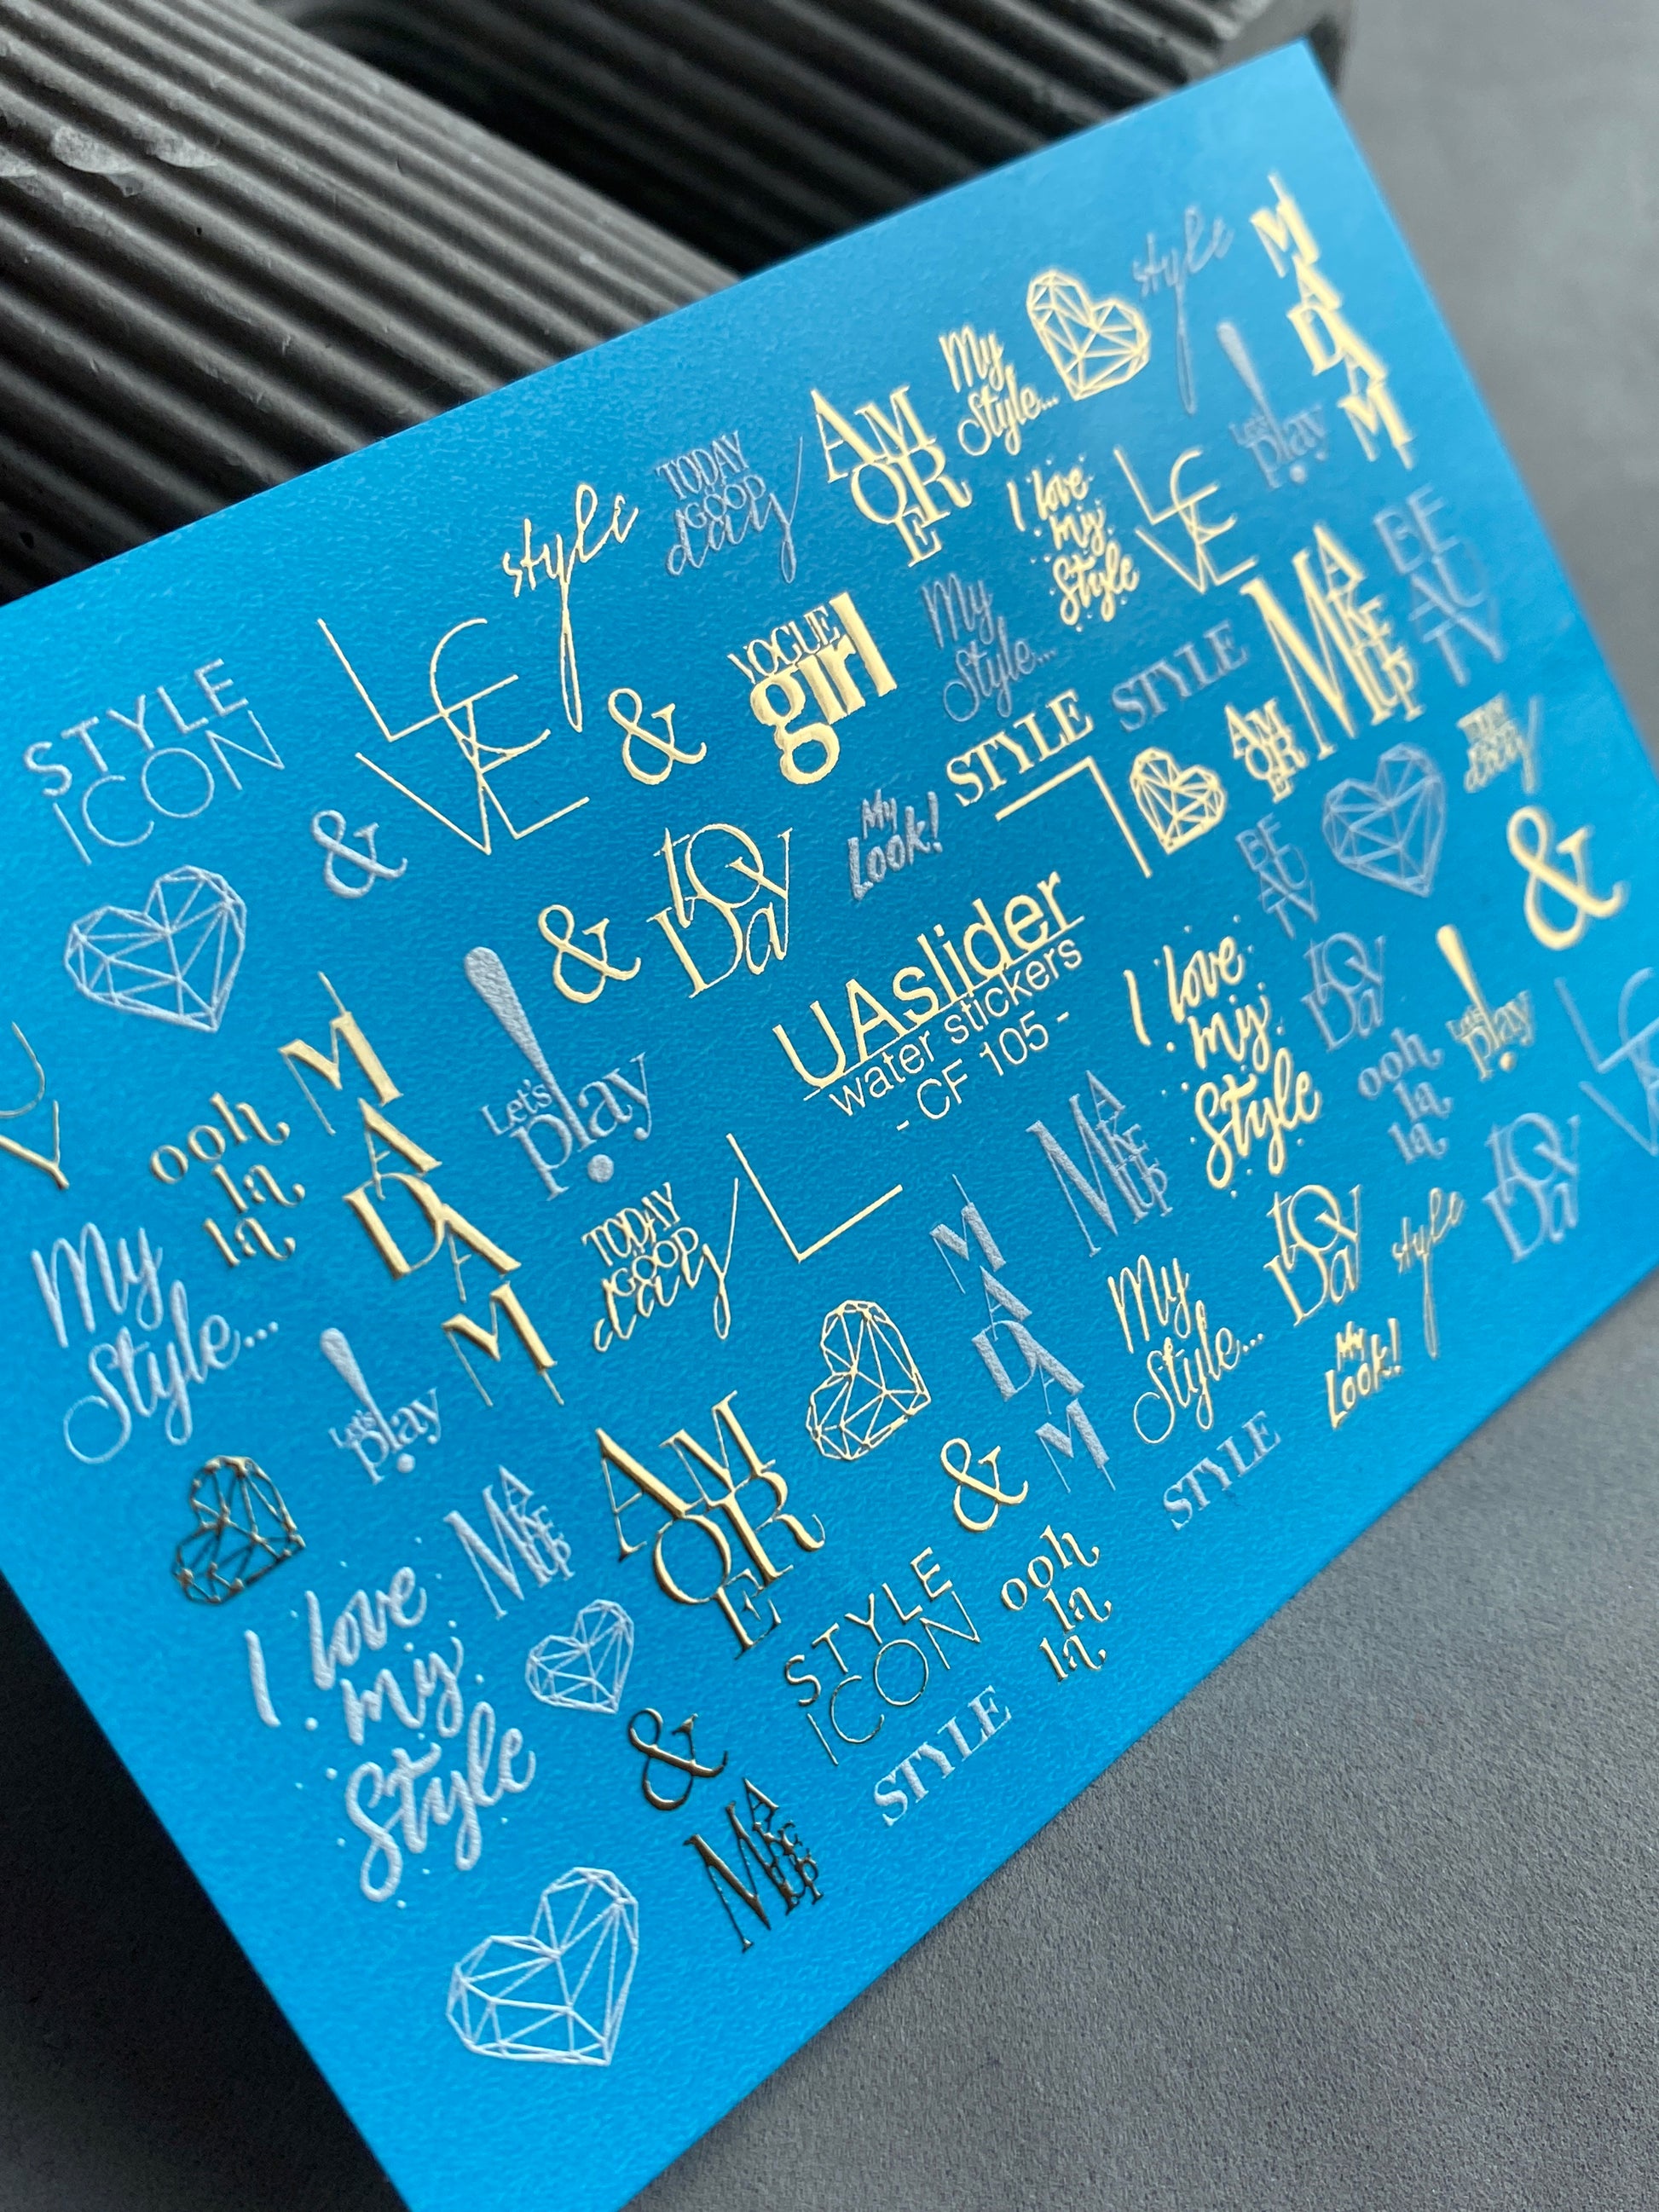 STYLE
ICON
LOVE
style
TODAY
GOOD
day
AM
OR
E
My
Style...
style
MADAM
&
&
VOGUE
girl
My
Style...
I love
my
Style
LOVE
Let's
play
&
toDay
My
Look!
STYLE
STYLE
MAKEUP
BEAUTY
AM
OR
E
UAslider
water stickers
- CF 105 -
ooh
la
la
MADAM
Let's
play
TODAY
GOOD
day
MAKEUP
I love
my
Style
BEAUTY
toDay
&
ooh
la
la
Let's
play
LOVE
My
Style...
Let's
play
AM
OR
E
MADAM
&
My
Style...
toDay
style
toDay
My
Look!
STYLE
I love
my
Style
MAKEUP
&
STYLE
ICON
ooh
la
la
STYLE
MAKEUP